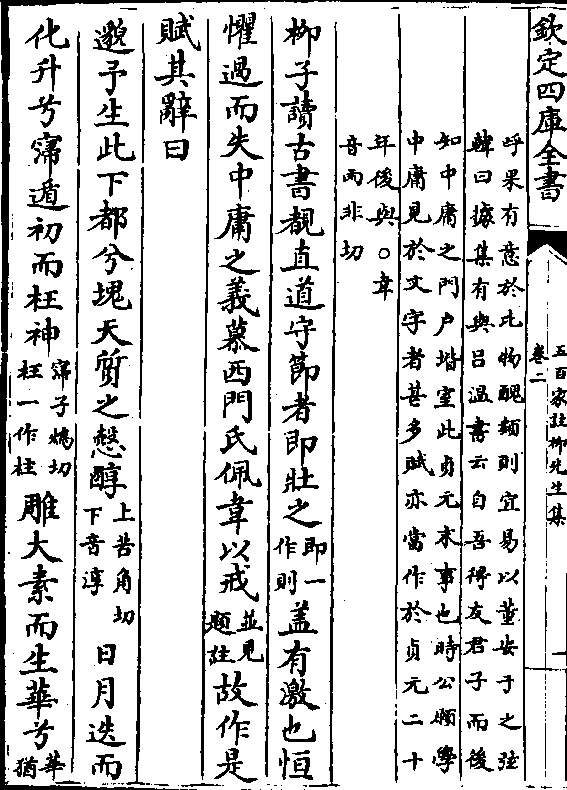 欽定四庫全書
五百家註柳先生集
卷二
一
呼果有意於此物醜類則宜易以董安于之弦
韓曰據集有與呂溫書云自吾得友君子而後
知中庸之門户堦室此貞元末事也時公頗學
中庸見於文字者甚多賦亦當作於貞元二十
年後與○韋
音而非切
柳子讀古書覩直道守節者即壯之即一
作則蓋有激也恒
懼過而失中庸之義慕西門氏佩韋以戒並見
題註故作是
賦其辭曰
邈予生此下都兮塊天質之慤醇上苦角切
下音淳日月迭而
化升兮寓遁初而枉神寓子㷌切
枉一作柱雕大素而生華兮華
猶